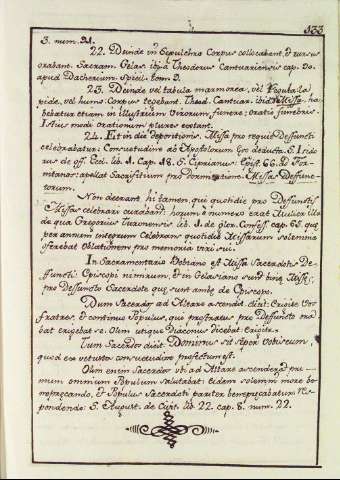 133
3. num. 21.
22. Deinde in Sepulchro Corpus collocabant, & rursus
orabant. Sacram. Gelas. ibid. Theodorus Cantuariensis cap.
apud Dacherium. Spicil. tom. 9.
23. Deinde vel tabula marmorea, vel
pide, vel humo Corpus tegebant. Theod. Cantuar. ibid. Missa ha
bebatur etiam in illustrium Virorum, funere: oratio funebris.
Istius modi orationum plures extant.
24. Et in die depositionis, Missa pro requie Deffuncti
celebrabatur: Consuetudine ab Apostolorum deducta. S. Isido
rus de off. Eccl. lib. 1. Cap. 18. S. Ciprianus: Epist. 66. ad
apellat Sacrifitium pro Dormitione. Missas Deffunc
torum.
Non deerant hi tamen, qui quotidie pro Deffunctis
Missas celebrari curabant: horum è numero erat Mulier illa
de qua Gregorius Turonensis lib. de glor. Confess. cap. 65. quæ
per annum integrum Celebrans quotidie Missarum solemnia
oferebat oblationem pro memoria viri sui.
In Sacramentario Gelasiano est Missa Sacerdotis De-
ffuncti: Episcopi nimirum, & in Gelasiano sunt binæ Missæ,
pro Deffuncto Sacerdote quæ sunt ambæ de Episcopo.
Dum Sacerdos ad Altare ascendit dicit: Erigite Vos
fratres, & continuo Populus, qui prostratus pro Deffuncto ora
bat erigebat se. Olim utique Diaconus dicebat: Erigite.
Tum Sacerdos dicit Dominus sit semper Vobiscum,
quod ex vetusta consuetudine profectum est.
Olim enim Sacerdos ubi ad Altare ascenderat pri-
mum omnium Populum Salutabat: eidem solemni more be
neprecando, & Populus Sacerdoti pariter beneprecabatur res
pondendo: S. August. de Civit. lib. 22. cap. 8. num. 22.